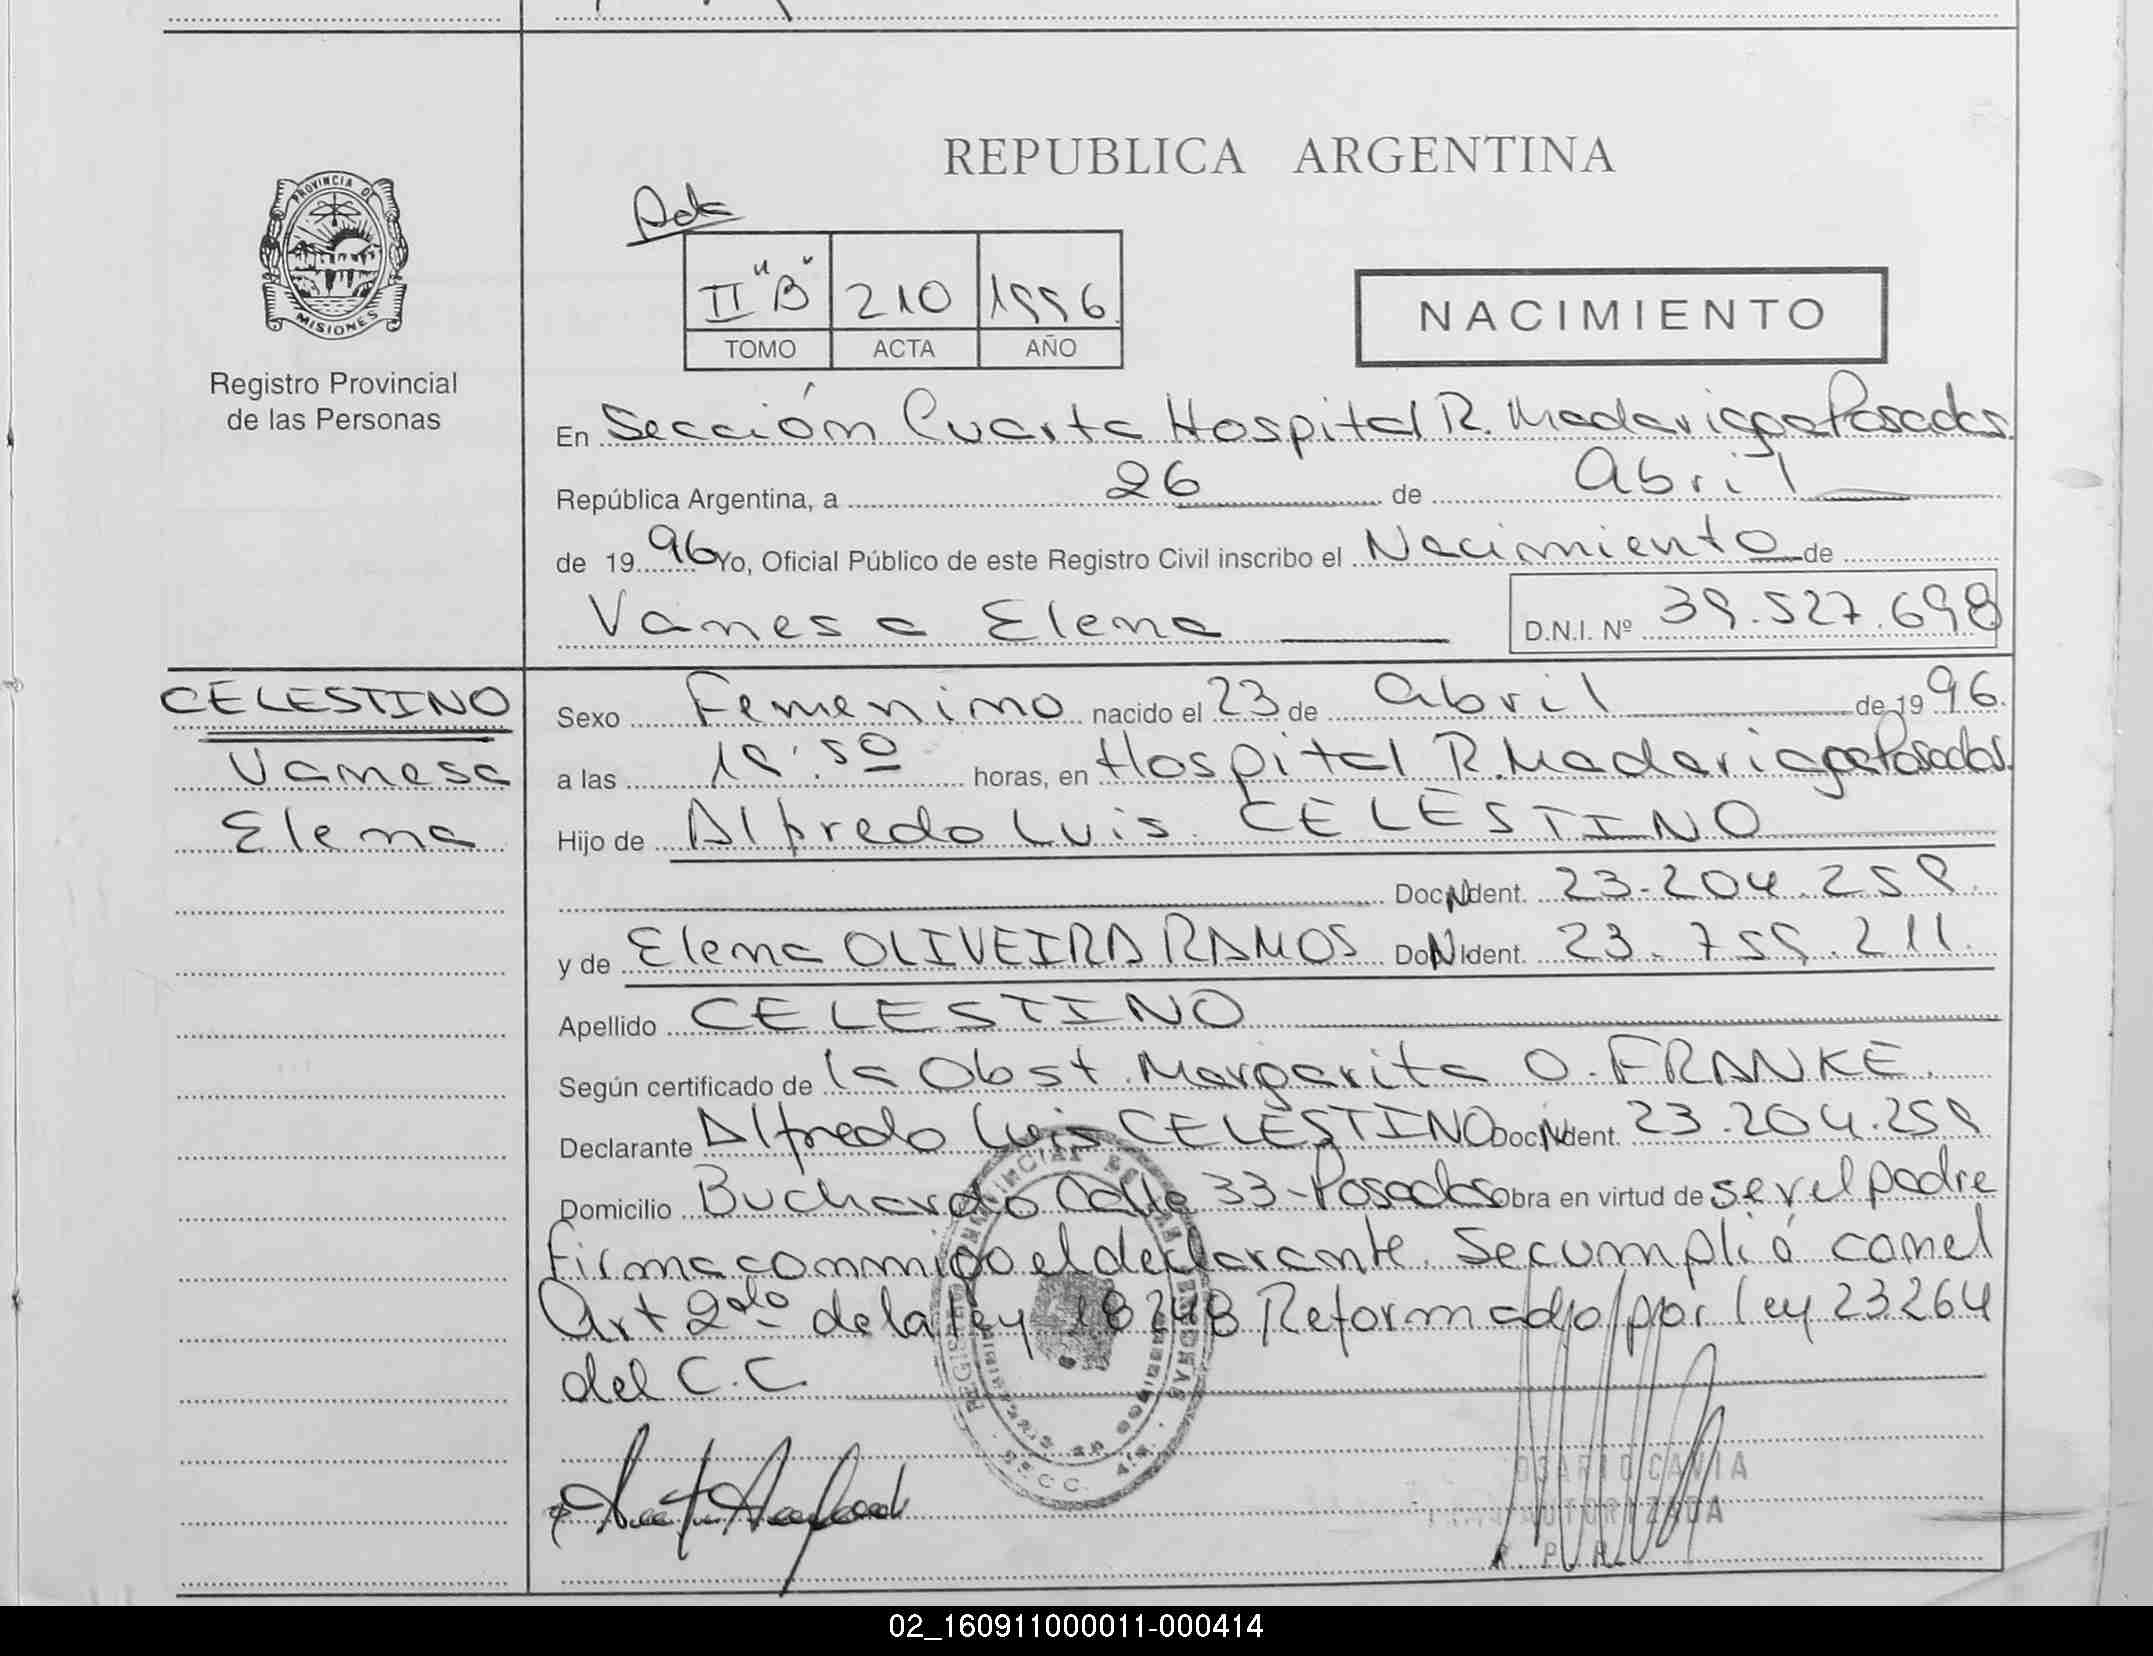 REPUBLICA ARGENTINA
PROVINCIA DE
MISIONES
Registro Provincial
de las Personas
Acta
II "B" 210 1996
TOMO ACTA AÑO
NACIMIENTO
En Sección Cuarta Hospital R. Madariaga Posadas.
República Argentina, a 26 de Abril
de 1996 Yo, Oficial Público de este Registro Civil inscribo el Nacimiento de
Vanesa Elena D.N.I. Nº 39.527.698
CELESTINO
Vanesa
Elena
Sexo Femenino nacido el 23 de Abril de 1996.
a las horas, en Hospital R. Madariaga Posadas.
Hijo de Alfredo Luis CELESTINO
Doc. N Ident. 23.204.259.
y de Elena OLIVEIRA RAMOS Doc. N Ident. 23.759.211.
Apellido CELESTINO
Según certificado de la Obst. Margarita O. FRANKE.
Declarante Alfredo Luis CELESTINO Doc. N Ident. 23.204.259
Domicilio Buchardo Calle 33-Posadas Obra en virtud de ser el padre
Firma conmigo el declarante. Se cumplió con el
Art 2do de la ley 18248 Reformado por ley 23264
del C.C.
AUTORIZADA
R. P. P.
02_160911000011-000414